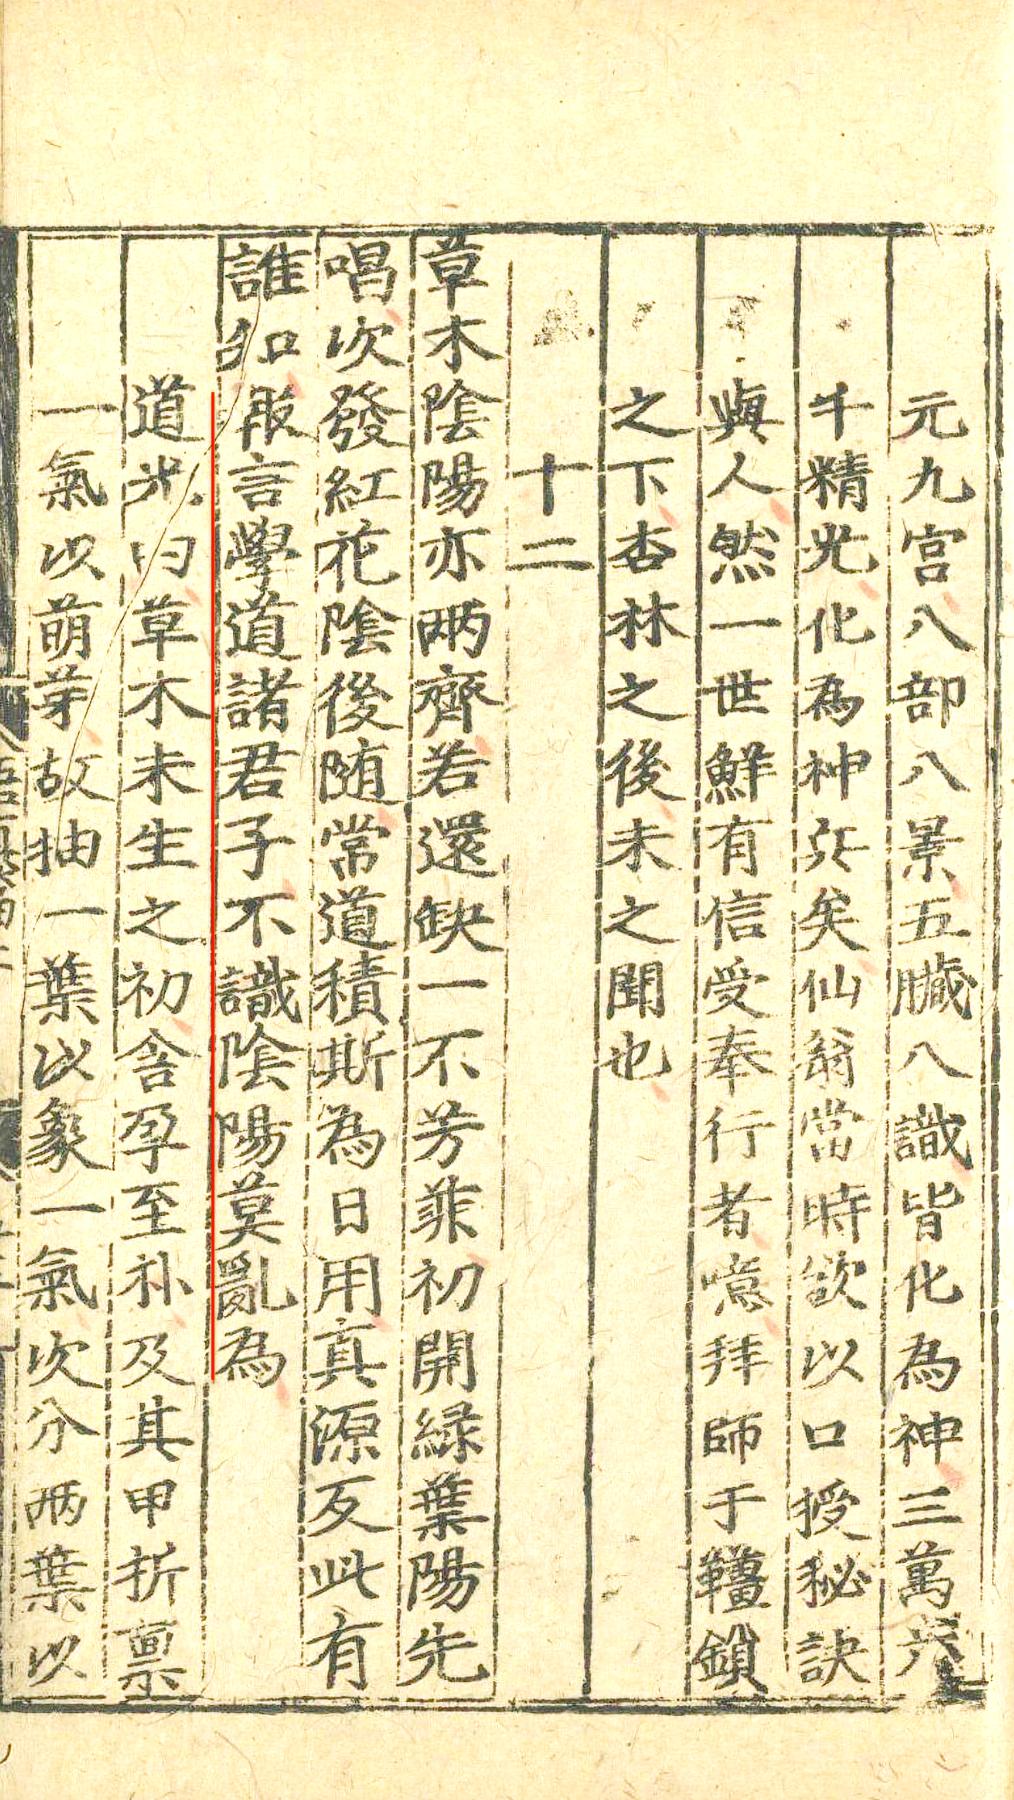 元九宫八部八景五臟八識皆化為神三萬六
千精光化為神兵矣仙翁當時欲以口授秘訣
與人然一世鮮有信受奉行者噫拜師于韁鎖
之下杏林之後未之聞也
十二
草木陰陽亦兩齊若還缺一不芳菲初開緑葉陽先
唱次發紅花陰後随常道積斯為日用真源反此有
誰知報言學道諸君子不識陰陽莫亂為
道光曰草木未生之初含孕至朴及其甲折禀
一氣以萌芽故抽一葉以象一氣次分兩葉以